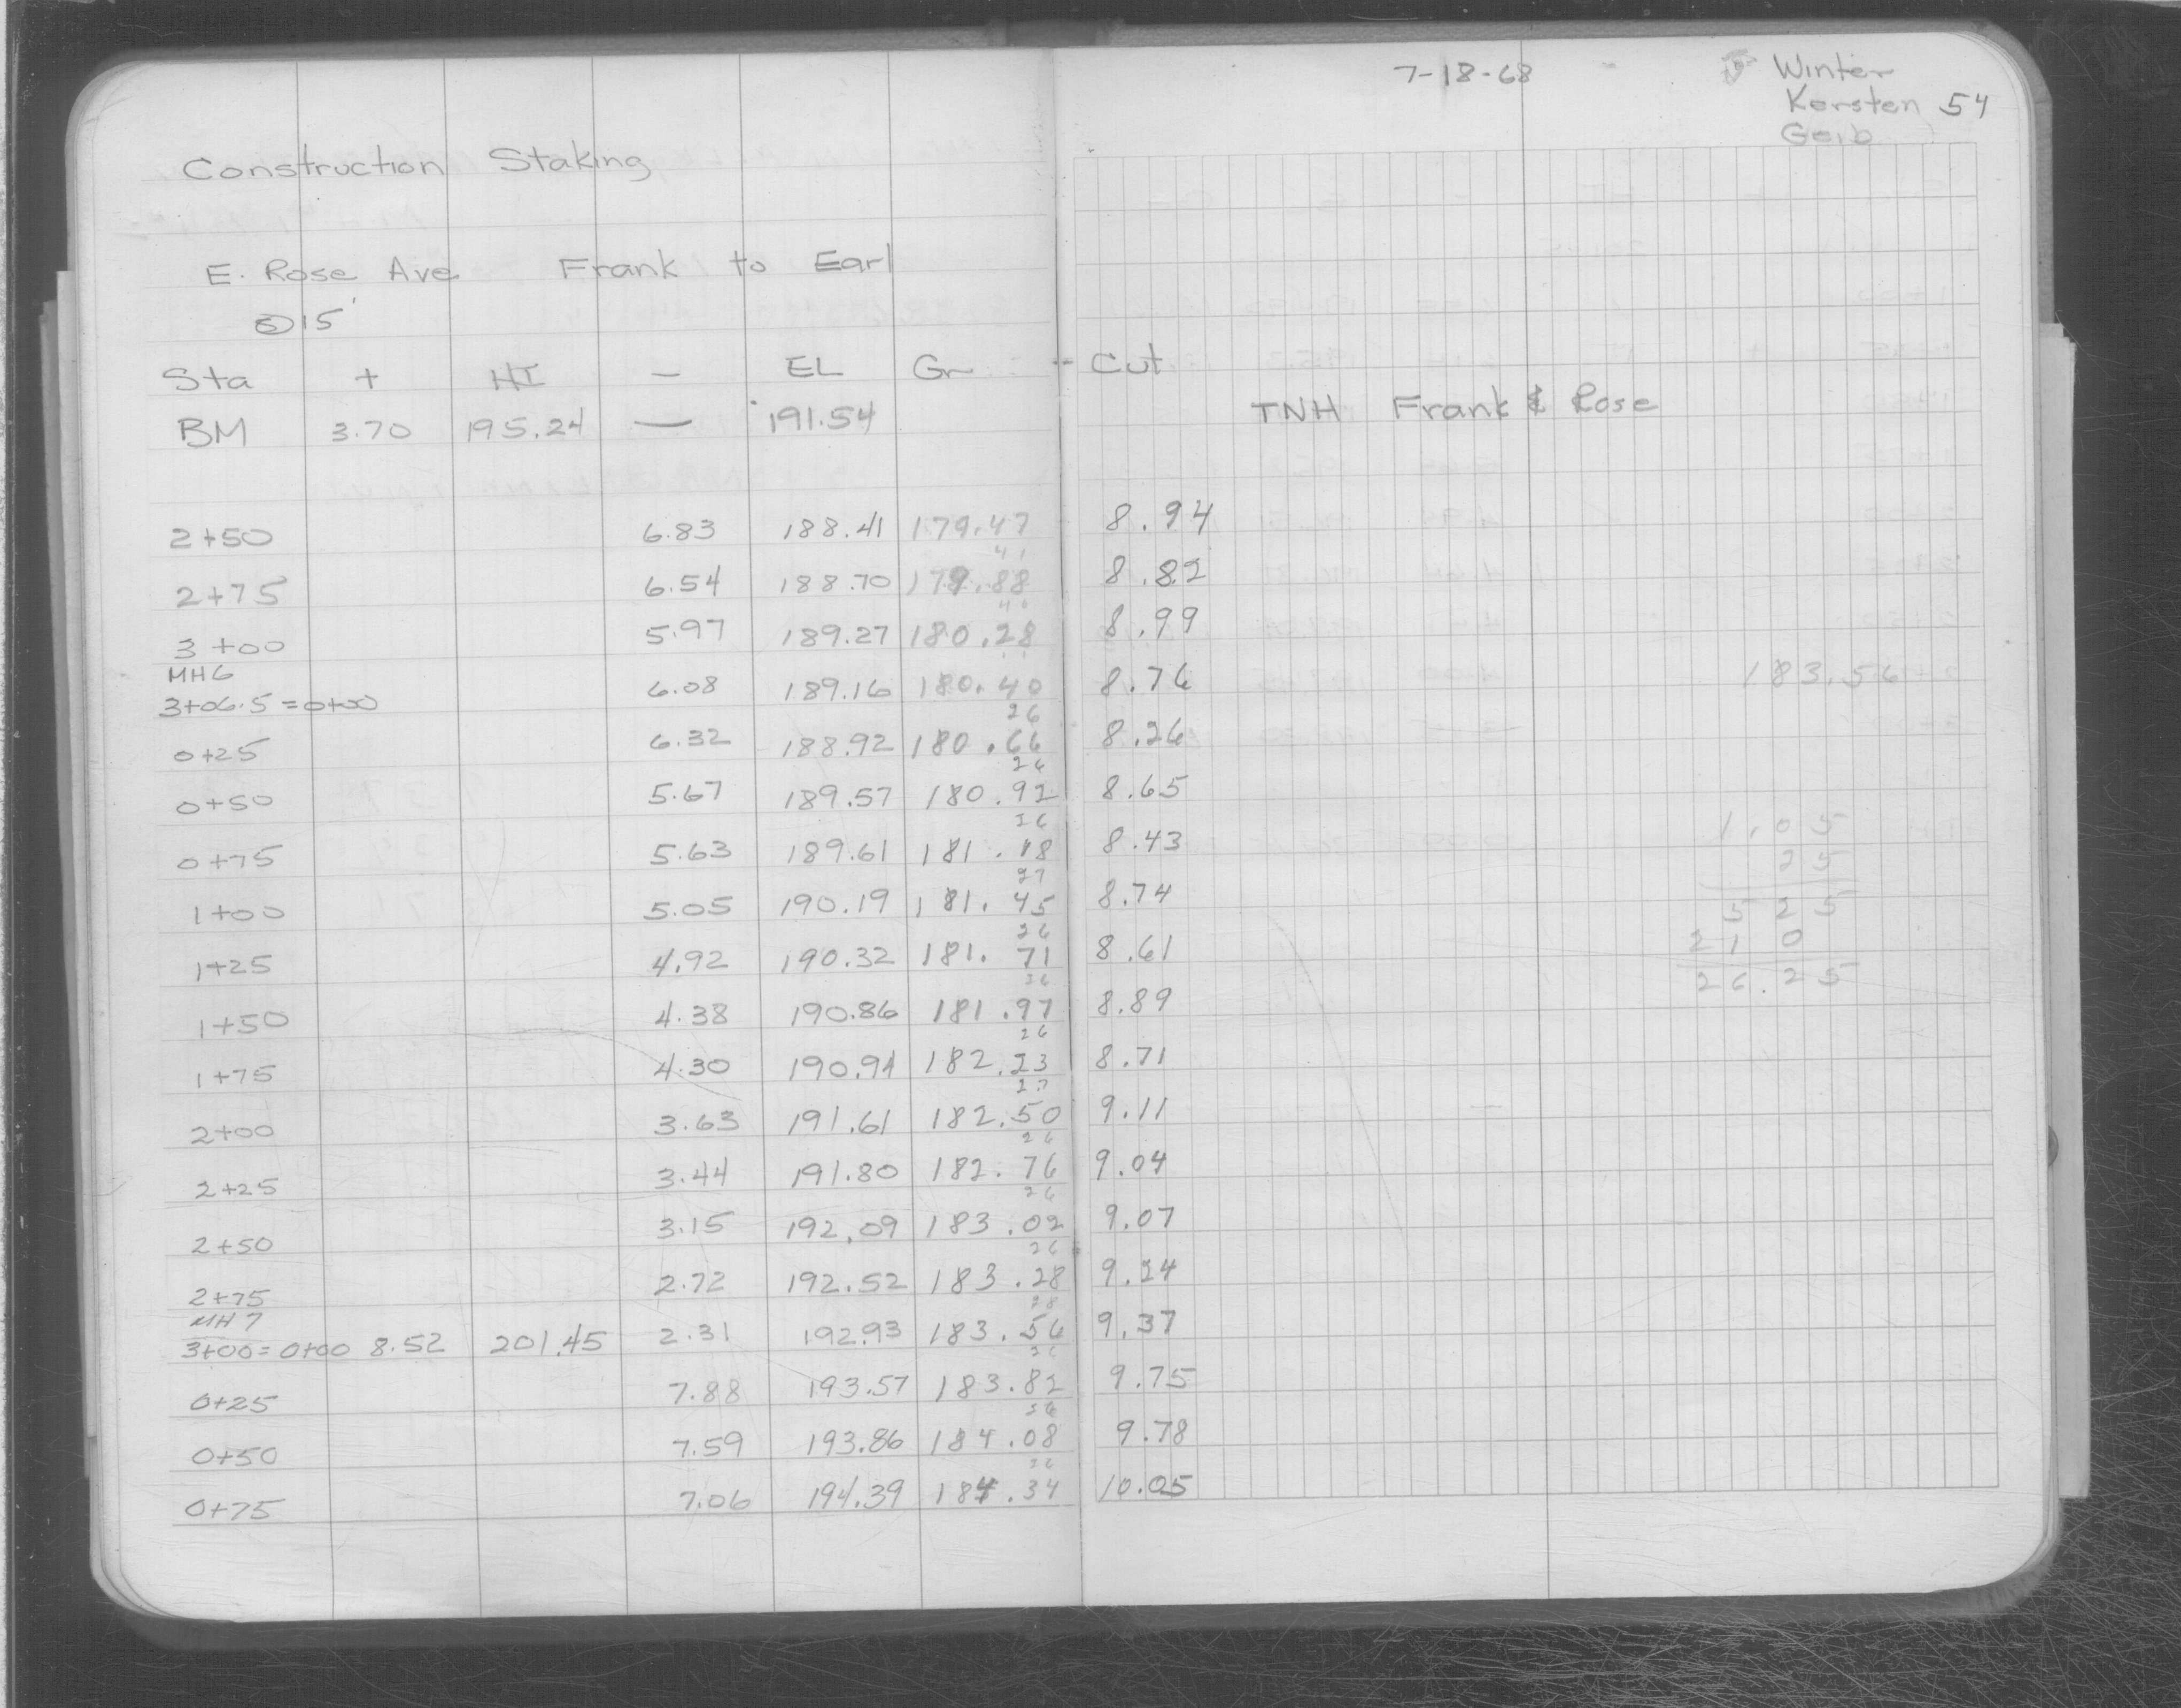 7-18-68 Winter
Kersten 54
Geib
Construction Staking
E. Rose Ave Frank to Earl
15'
Sta + HI - EL Gr Cut
BM 3.70 195.24 — 191.54 TNH Frank & Rose
2+50 6.83 188.41 179.47 8.94
41
2+75 6.54 188.70 179.88 8.82
40
3+00 5.97 189.27 180.28 8.99
MH6
3+06.5=0+00 6.08 189.16 180.40 8.76 183.56
26
0+25 6.32 188.92 180.66 8.26
26
0+50 5.67 189.57 180.92 8.65
26 1.05
0+75 5.63 189.61 181.18 8.43
27 25
1+00 5.05 190.19 181.45 8.74 525
26 210
1+25 4.92 190.32 181.71 8.61
26 26.25
1+50 4.38 190.86 181.97 8.89
26
1+75 4.30 190.94 182.23 8.71
27
2+00 3.63 191.61 182.50 9.11
26
2+25 3.44 191.80 182.76 9.04
26
2+50 3.15 192.09 183.02 9.07
26
2+75 2.72 192.52 183.28 9.24
MH7 28
3+00=0+00 8.52 201.45 2.31 192.93 183.56 9.37
26
0+25 7.88 193.57 183.82 9.75
26
0+50 7.59 193.86 184.08 9.78
26
0+75 7.06 194.39 184.34 10.05